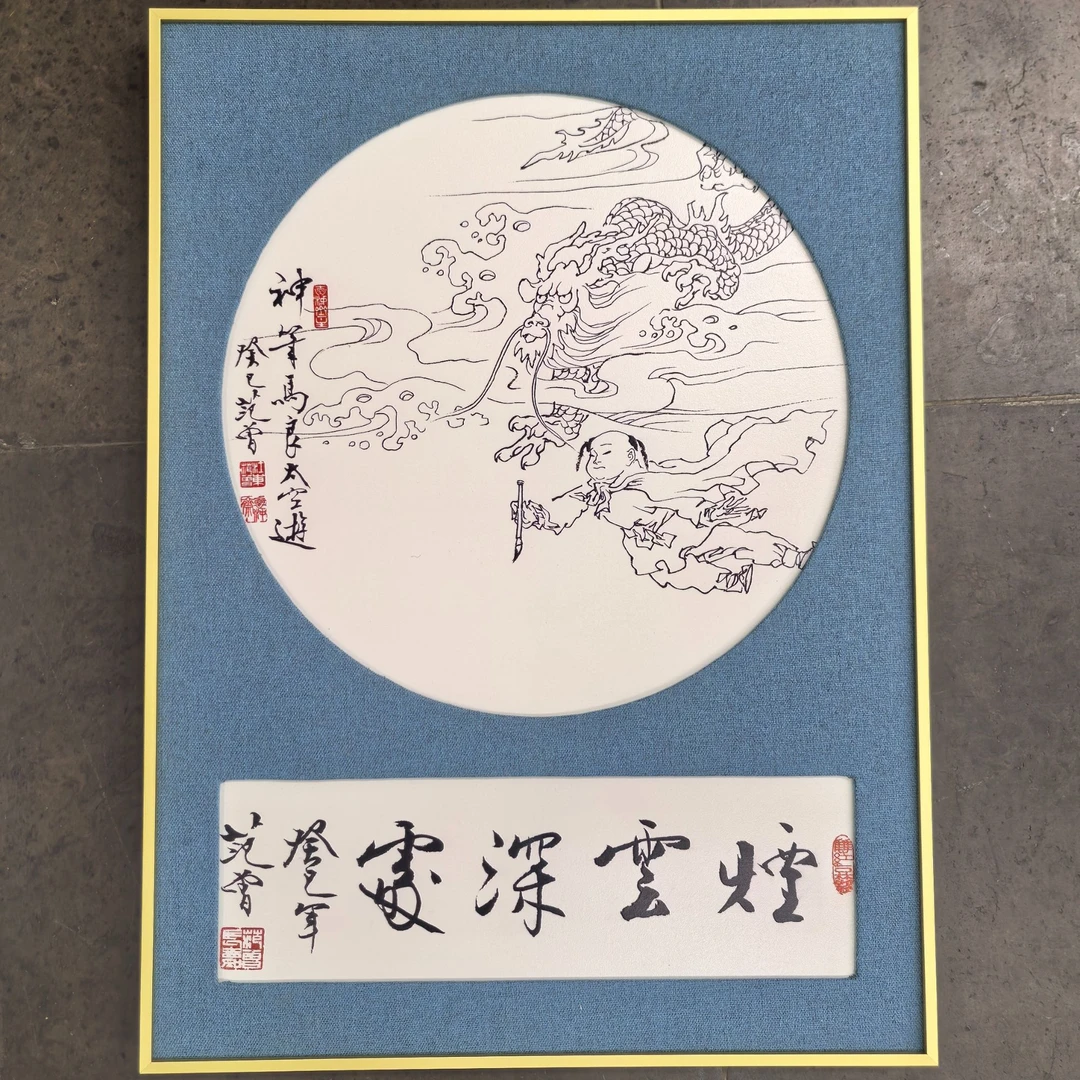 神筆馬良太空遊
癸巳范曾
煙雲深處
癸巳年
范曾